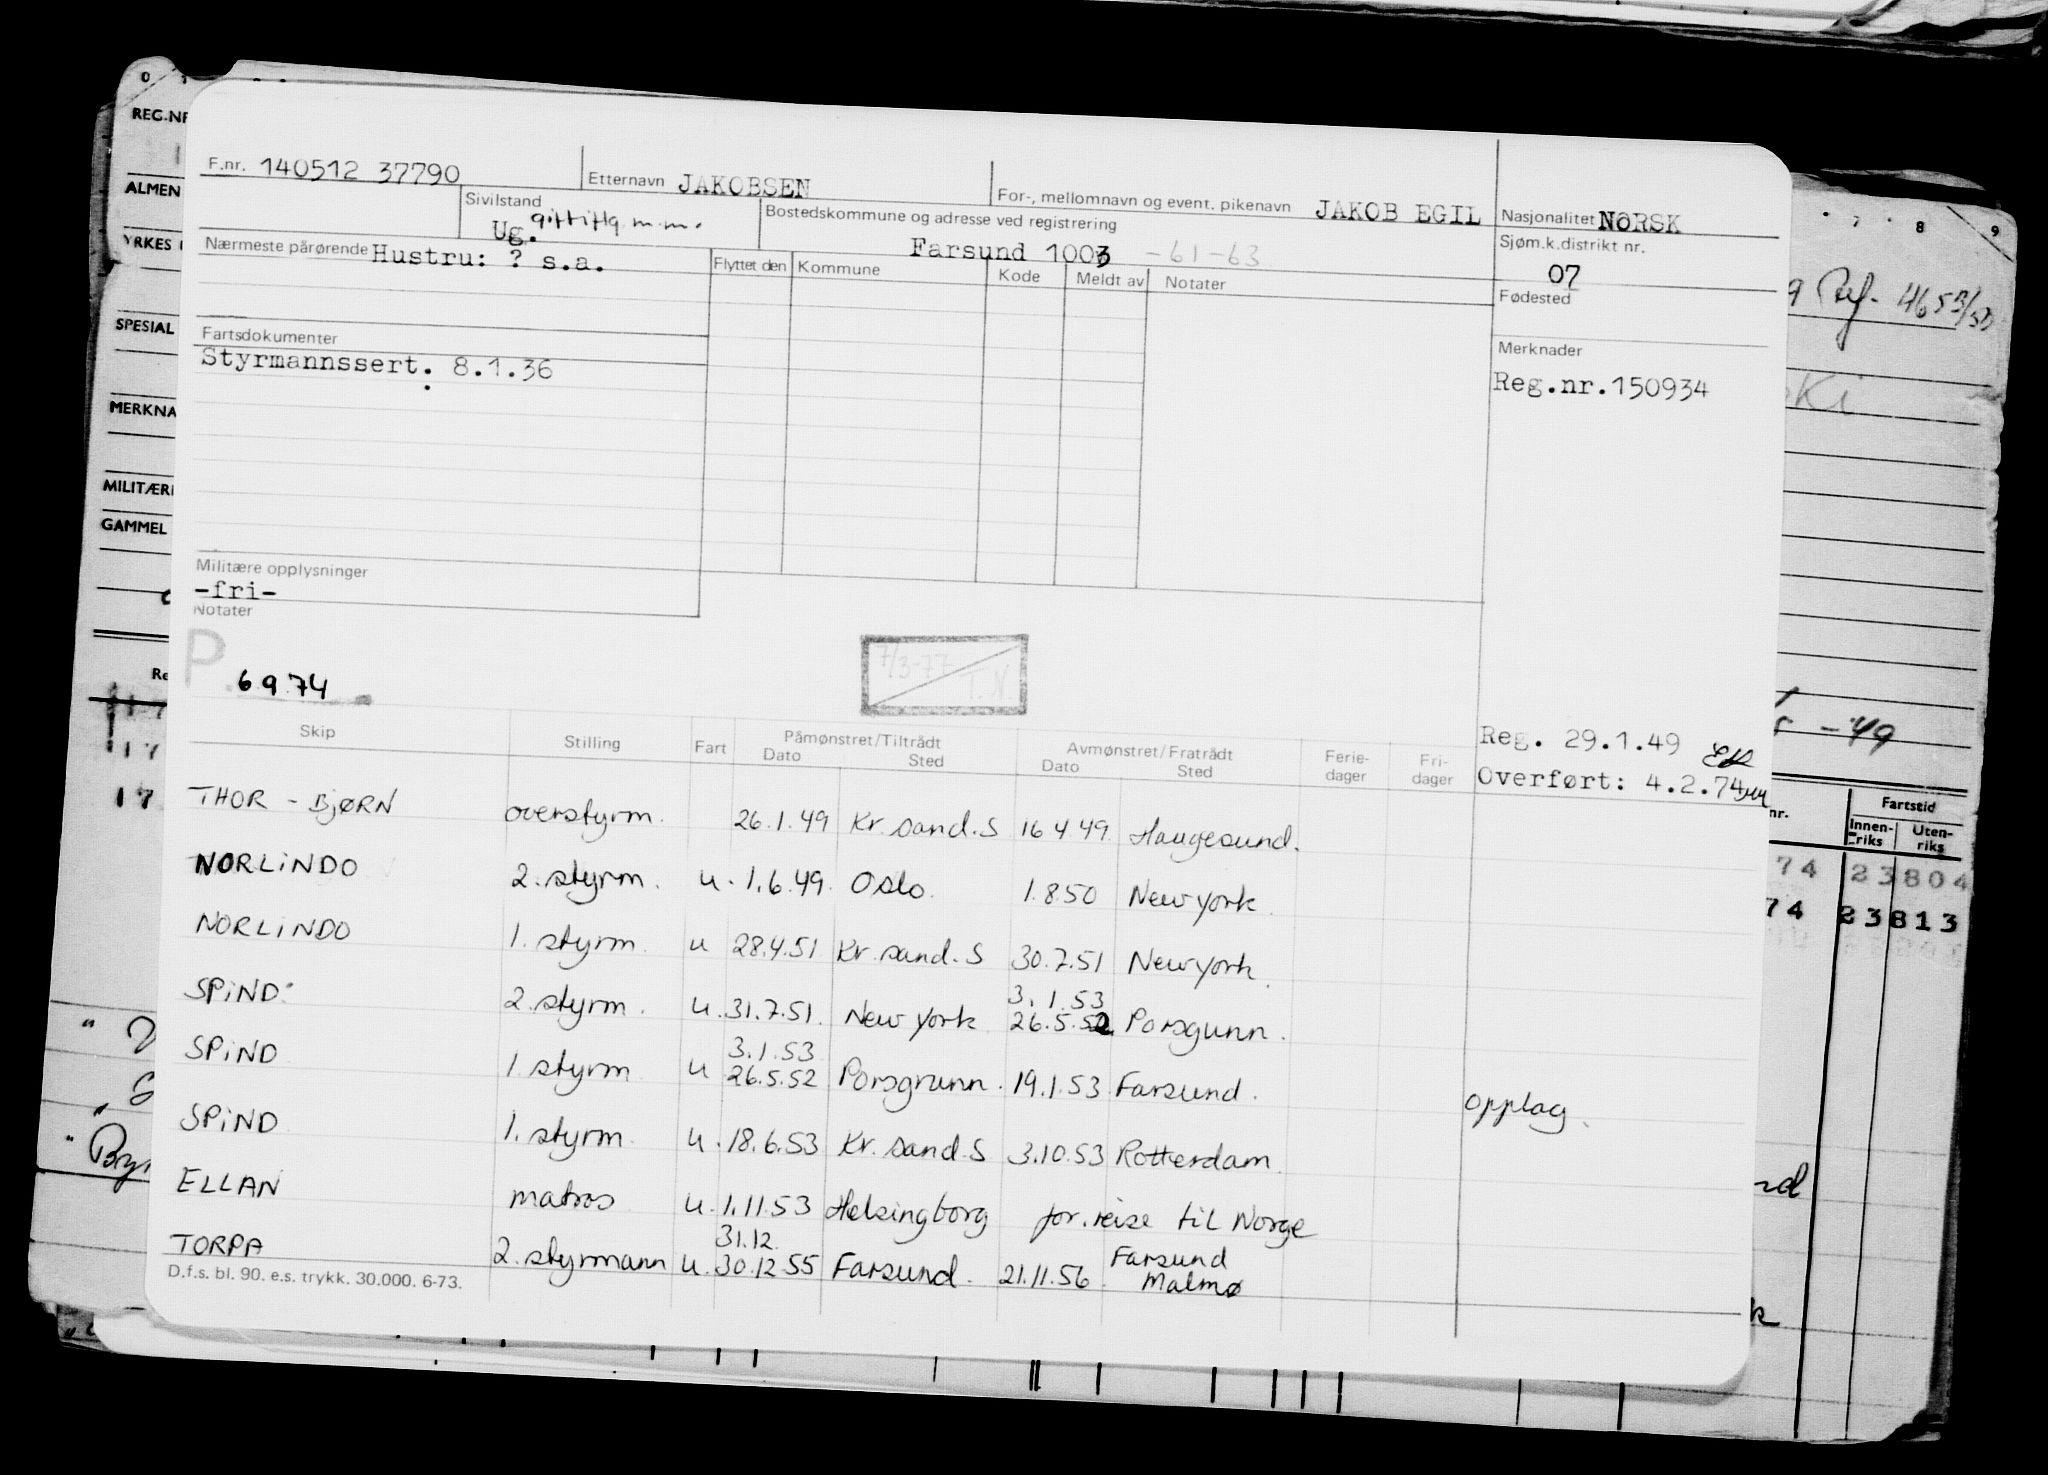 REG.NR
ALMEN
YRKES
SPESIAL
MERKNA
MILITÆR
GAMMEL
F.nr. 140512 37790 Etternavn JAKOBSEN For-, mellomnavn og event. pikenavn JAKOB EGIL Nasjonalitet NORSK
Sivilstand Ug. giftiflg.m.m. Bostedskommune og adresse ved registrering Farsund 1003 -61-63 Sjøm.k.distrikt nr. 07
Nærmeste pårørende Hustru: ? s.a. Flyttet den Kommune Kode Meldt av Notater Fødested
Fartsdokumenter
Styrmannssert. 8.1.36
Merknader
Reg.nr.150934
Militære opplysninger
-fri-
Notater
P 6 9 74
7/3-77
T.N.
Reg. 29.1.49
Overført: 4.2.74
Skip Stilling Fart Påmønstret/Tiltrådt Avmønstret/Fratrådt Ferie-dager Fri-dager
Dato Sted Dato Sted
THOR - BJØRN overstyrm. 26.1.49 Kr.sand.S 16 4 49 Haugesund.
NORLINDO 2.styrm. u. 1.6.49. Oslo. 1.8.50 New york.
NORLINDO 1. styrm. u 28.4.51 Kr.sand.S 30.7.51 New york.
SPIND 2.styrm. u. 31.7.51. New york 3.1.53 26.5.52 Porsgunn.
SPIND 1. styrm u 3.1.53 26.5.52 Porsgrunn. 19.1.53 Farsund. opplag.
SPIND 1. styrm. u. 18.6.53 Kr.sand.S 3.10.53 Rotterdam.
ELLAN matros u. 1.11.53 Helsingborg for.reise til Norge
TORPA 2. styrmann u. 31.12. 30.12 55 Farsund. 21.11.56. Farsund Malmø
D.f.s. bl. 90. e.s. trykk. 30.000. 6-73.
7 8 9
465
-49
nr. Fartstid
Innen-riks Uten-riks
74 23804
74 23813